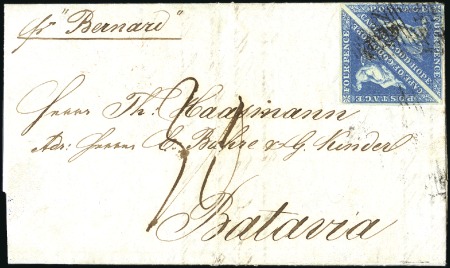 pr "Bernard"
FOUR PENCE
POSTAGE
CAPE OF GOOD HOPE
CAPE OF GOOD HOPE
POSTAGE
FOUR PENCE
Herrn Th. Haasmann
Adr: Herren E. Bahre & G. Kinder
Batavia